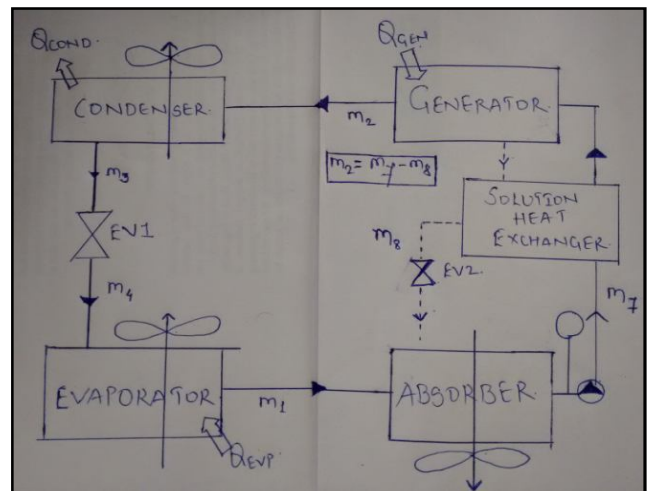 QCOND.
QGEN
CONDENSER.
GENERATOR.
m2
m2 = m7 - m8
m3
SOLUTION
HEAT
EXCHANGER.
EV1
m8
EV2.
m4
m7
EVAPORATOR
m1
ABSORBER.
QEVP.